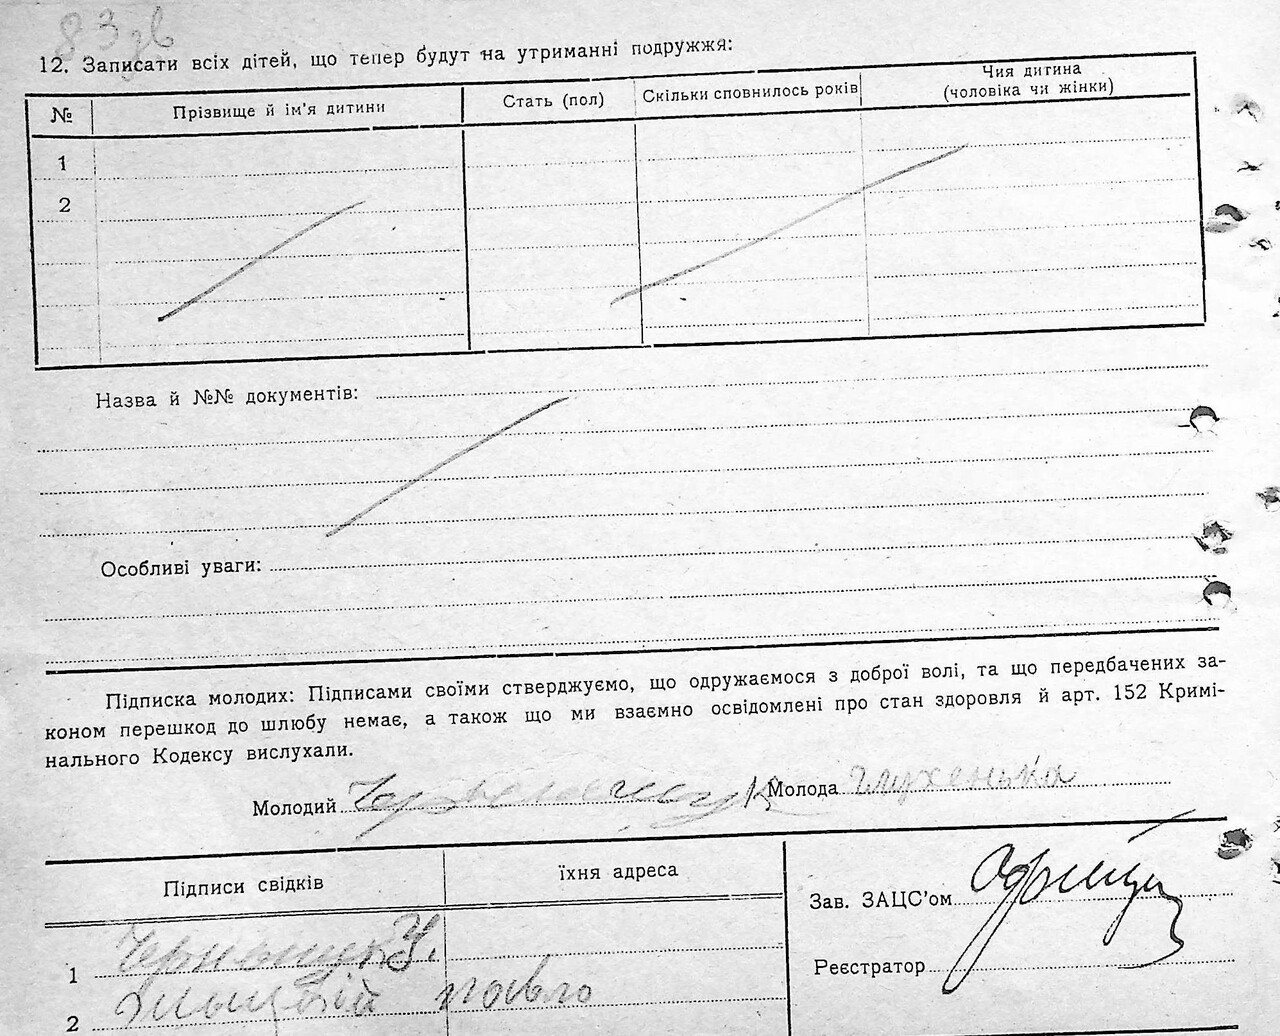 83 зв
12. Записати всіх дітей, що тепер будут на утриманні подружжя:
№ Прізвище й ім'я дитини Стать (пол) Скільки сповнилось років Чия дитина (чоловіка чи жінки)
1
2
Назва й №№ документів:
Особливі уваги:
Підписка молодих: Підписами своїми стверджуємо, що одружаємося з доброї волі, та що передбачених за-
коном перешкод до шлюбу немає, а також що ми взаємно освідомлені про стан здоровля й арт. 152 Кримі-
нального Кодексу вислухали.
Молодий Молода Глухенька
Підписи свідків їхня адреса
Зав. ЗАЦС'ом
1
Реєстратор
2 Павло